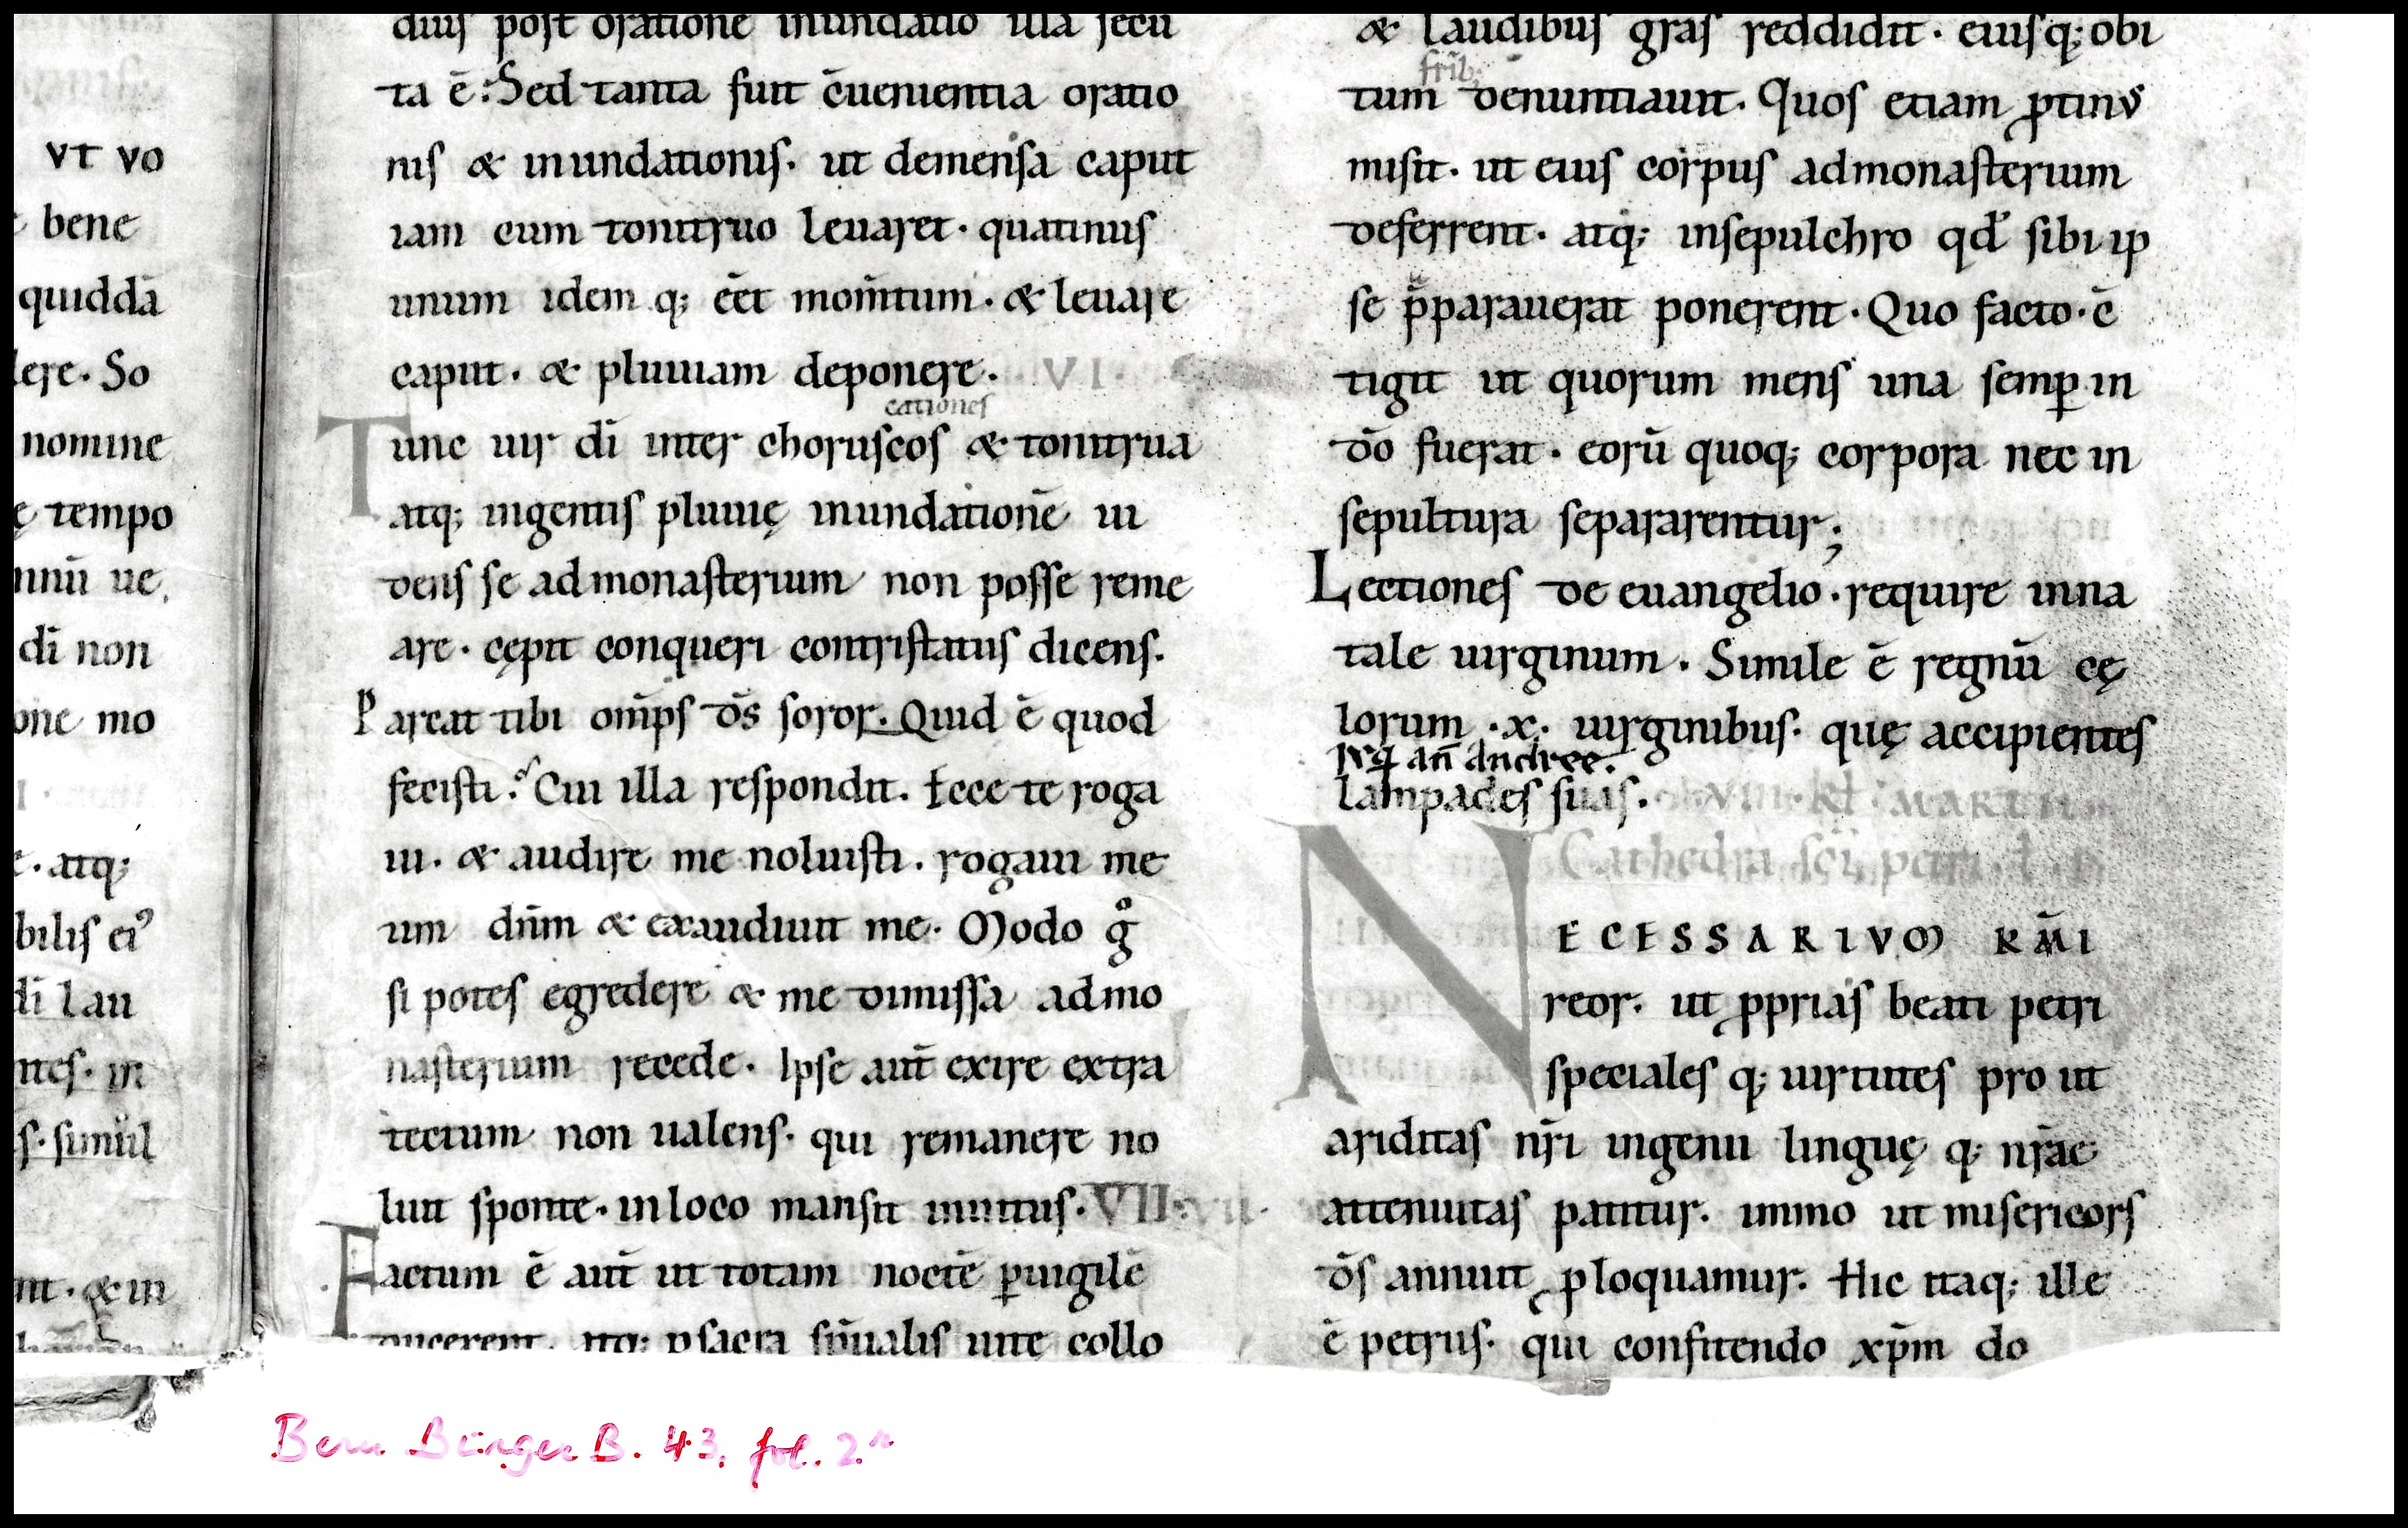 vt vo
bene
quiddā
lere. So
nomine
ę tempo
mnū ue
di̅ non
one mo
. atq;
bilis ei᾿
di̅ lau
ntes. in
s. simul
nt. & in
diuſ poſt oratione inundatio illa ſecu
ta ē: Sed tanta fuit c̄uenientia oratio
niſ & inundationiſ. ut demenſa caput
iam cum tonitruo leuaret. quatinuſ
unum idem q; eēt mom̄tum. & leuare
caput. & pluuiam deponere. VI.
cationeſ
Tunc uir di̅ inter choruſcoſ & tonitrua
atq; ingentiſ pluuię inundationē ui
denſ ſe ad monaſterium non poſſe reme
are. cępit conqueri contriſtatuſ dicenſ.
Parcat tibi om̅pſ d̅s ſoror. Quid ē quod
feciſti? Cui illa reſpondit. Ecce te roga
ui. & audire me noluiſti. rogaui me
um dn̅m & exaudiuit me. Modo g̊
ſi poteſ egredere & me dimiſſa ad mo
naſterium recede. Ipſe aut̅ exire extra
tectum non ualenſ. qui remanere no
luit ſponte. in loco manſit inuituſ. VII.
Factum ē aut̅ ut totam noctē ꝑuigilē
ducerent. atq; ꝑ ſacra ſpūaliſ uite collo
& laudibuſ gr̅aſ reddidit. eiuſq; obi
fr̅ib;
tum denuntiauit. Quoſ etiam ꝓtinuſ
miſit. ut eiuſ corpuſ ad monaſterium
deferrent. atq; in ſepulchro qd̅ ſibi ip
ſe p̄parauerat ponerent. Quo facto. c̄
tigit ut quorum menſ una ſemꝑ in
d̅o fuerat. eorū quoq; corpora nec in
ſepultura ſepararentur;
Lectioneſ de euangelio. require in na
tale uirginum. Simile ē regnū cę
lorum .x. uirginibuſ. quę accipienteſ
Rq̅ an̅ andree.
lampadeſ ſuaſ. VIII. kl̅. MARTII
Cathedra ſci̅ petri.
NECESSARIVM KM̅I
reor. ut ꝓpriaſ beati petri
ſpecialeſ q; uirtuteſ pro ut
ariditaſ nr̅i ingenii linguę q; nr̅ae
attenuitaſ patitur. immo ut miſericorſ
d̅ſ annuit ꝓloquamur. Hic itaq; ille
ē petruſ. qui confitendo xp̅m do
Bern Burger B. 43, fol. 2ʳ